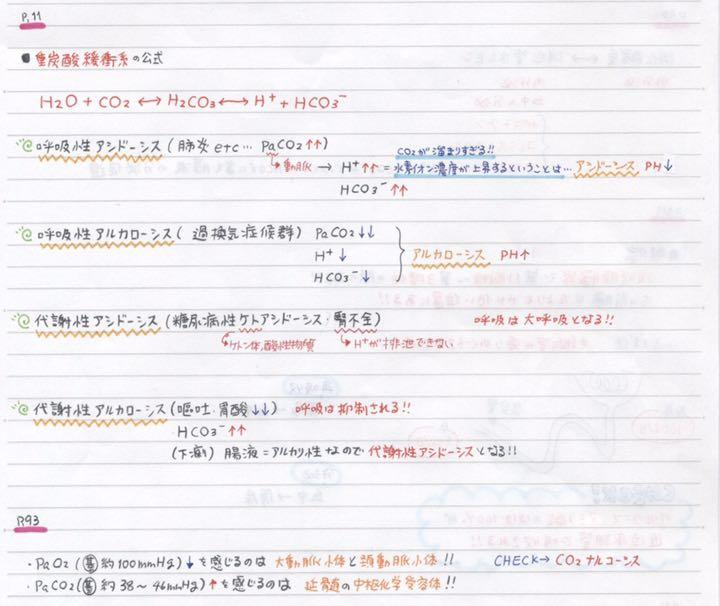 P.11
● 重炭酸緩衝系の公式
H2O + CO2 ⟷ H2CO3 ⟷ H⁺ + HCO3⁻
呼吸性アシドーシス(肺炎etc… PaCO2↑↑)
CO2が溜まりすぎる!!
↳動脈 → H⁺↑↑ = 水素イオン濃度が上昇するということは… アシドーシス PH↓
HCO3⁻↑↑
呼吸性アルカローシス(過換気症候群) PaCO2↓↓
H⁺↓
アルカローシス PH↑
HCO3⁻↓
代謝性アシドーシス(糖尿病性ケトアシドーシス・腎不全) 呼吸は大呼吸となる!!
↳ケトン体,酸性物質 ↳H⁺が排泄できない
代謝性アルカローシス(嘔吐・胃酸↓↓) 呼吸は抑制される!!
HCO3⁻↑↑
(下痢) 腸液=アルカリ性なので代謝性アシドーシスとなる!!
P.93
・PaO2(基約100mmHg)↓を感じるのは 大動脈小体と頸動脈小体!! CHECK→CO2ナルコーシス
・PaCO2(基約38〜46mmHg)↑を感じるのは 延髄の中枢化学受容体!!